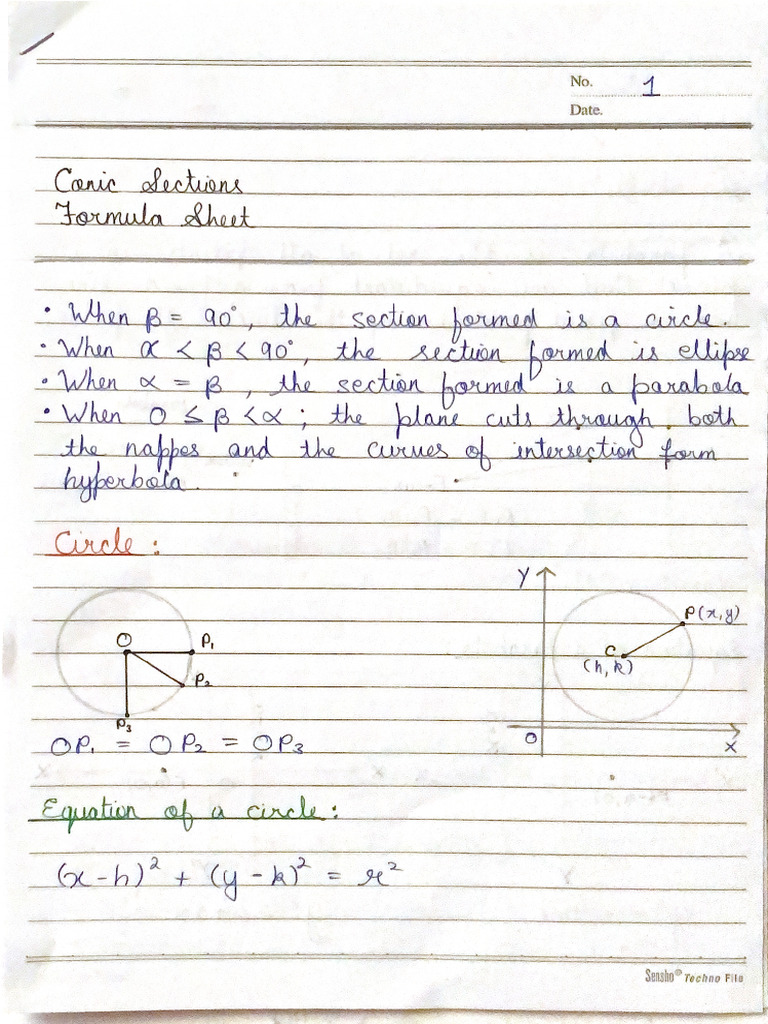 No. 1
Date.
Conic Sections
Formula Sheet
• When β = 90°, the section formed is a circle.
• When α < β < 90°, the section formed is ellipse
• When α = β, the section formed is a parabola
• When 0 ≤ β < α ; the plane cuts through both
the nappes and the curves of intersection form
hyperbola.
Circle :
O P₁
P₂
P₃
OP₁ = OP₂ = OP₃
Y
P(x,y)
C
(h,k)
O
X
Equation of a circle :
(x-h)² + (y-k)² = r²
Sensho® Techno File